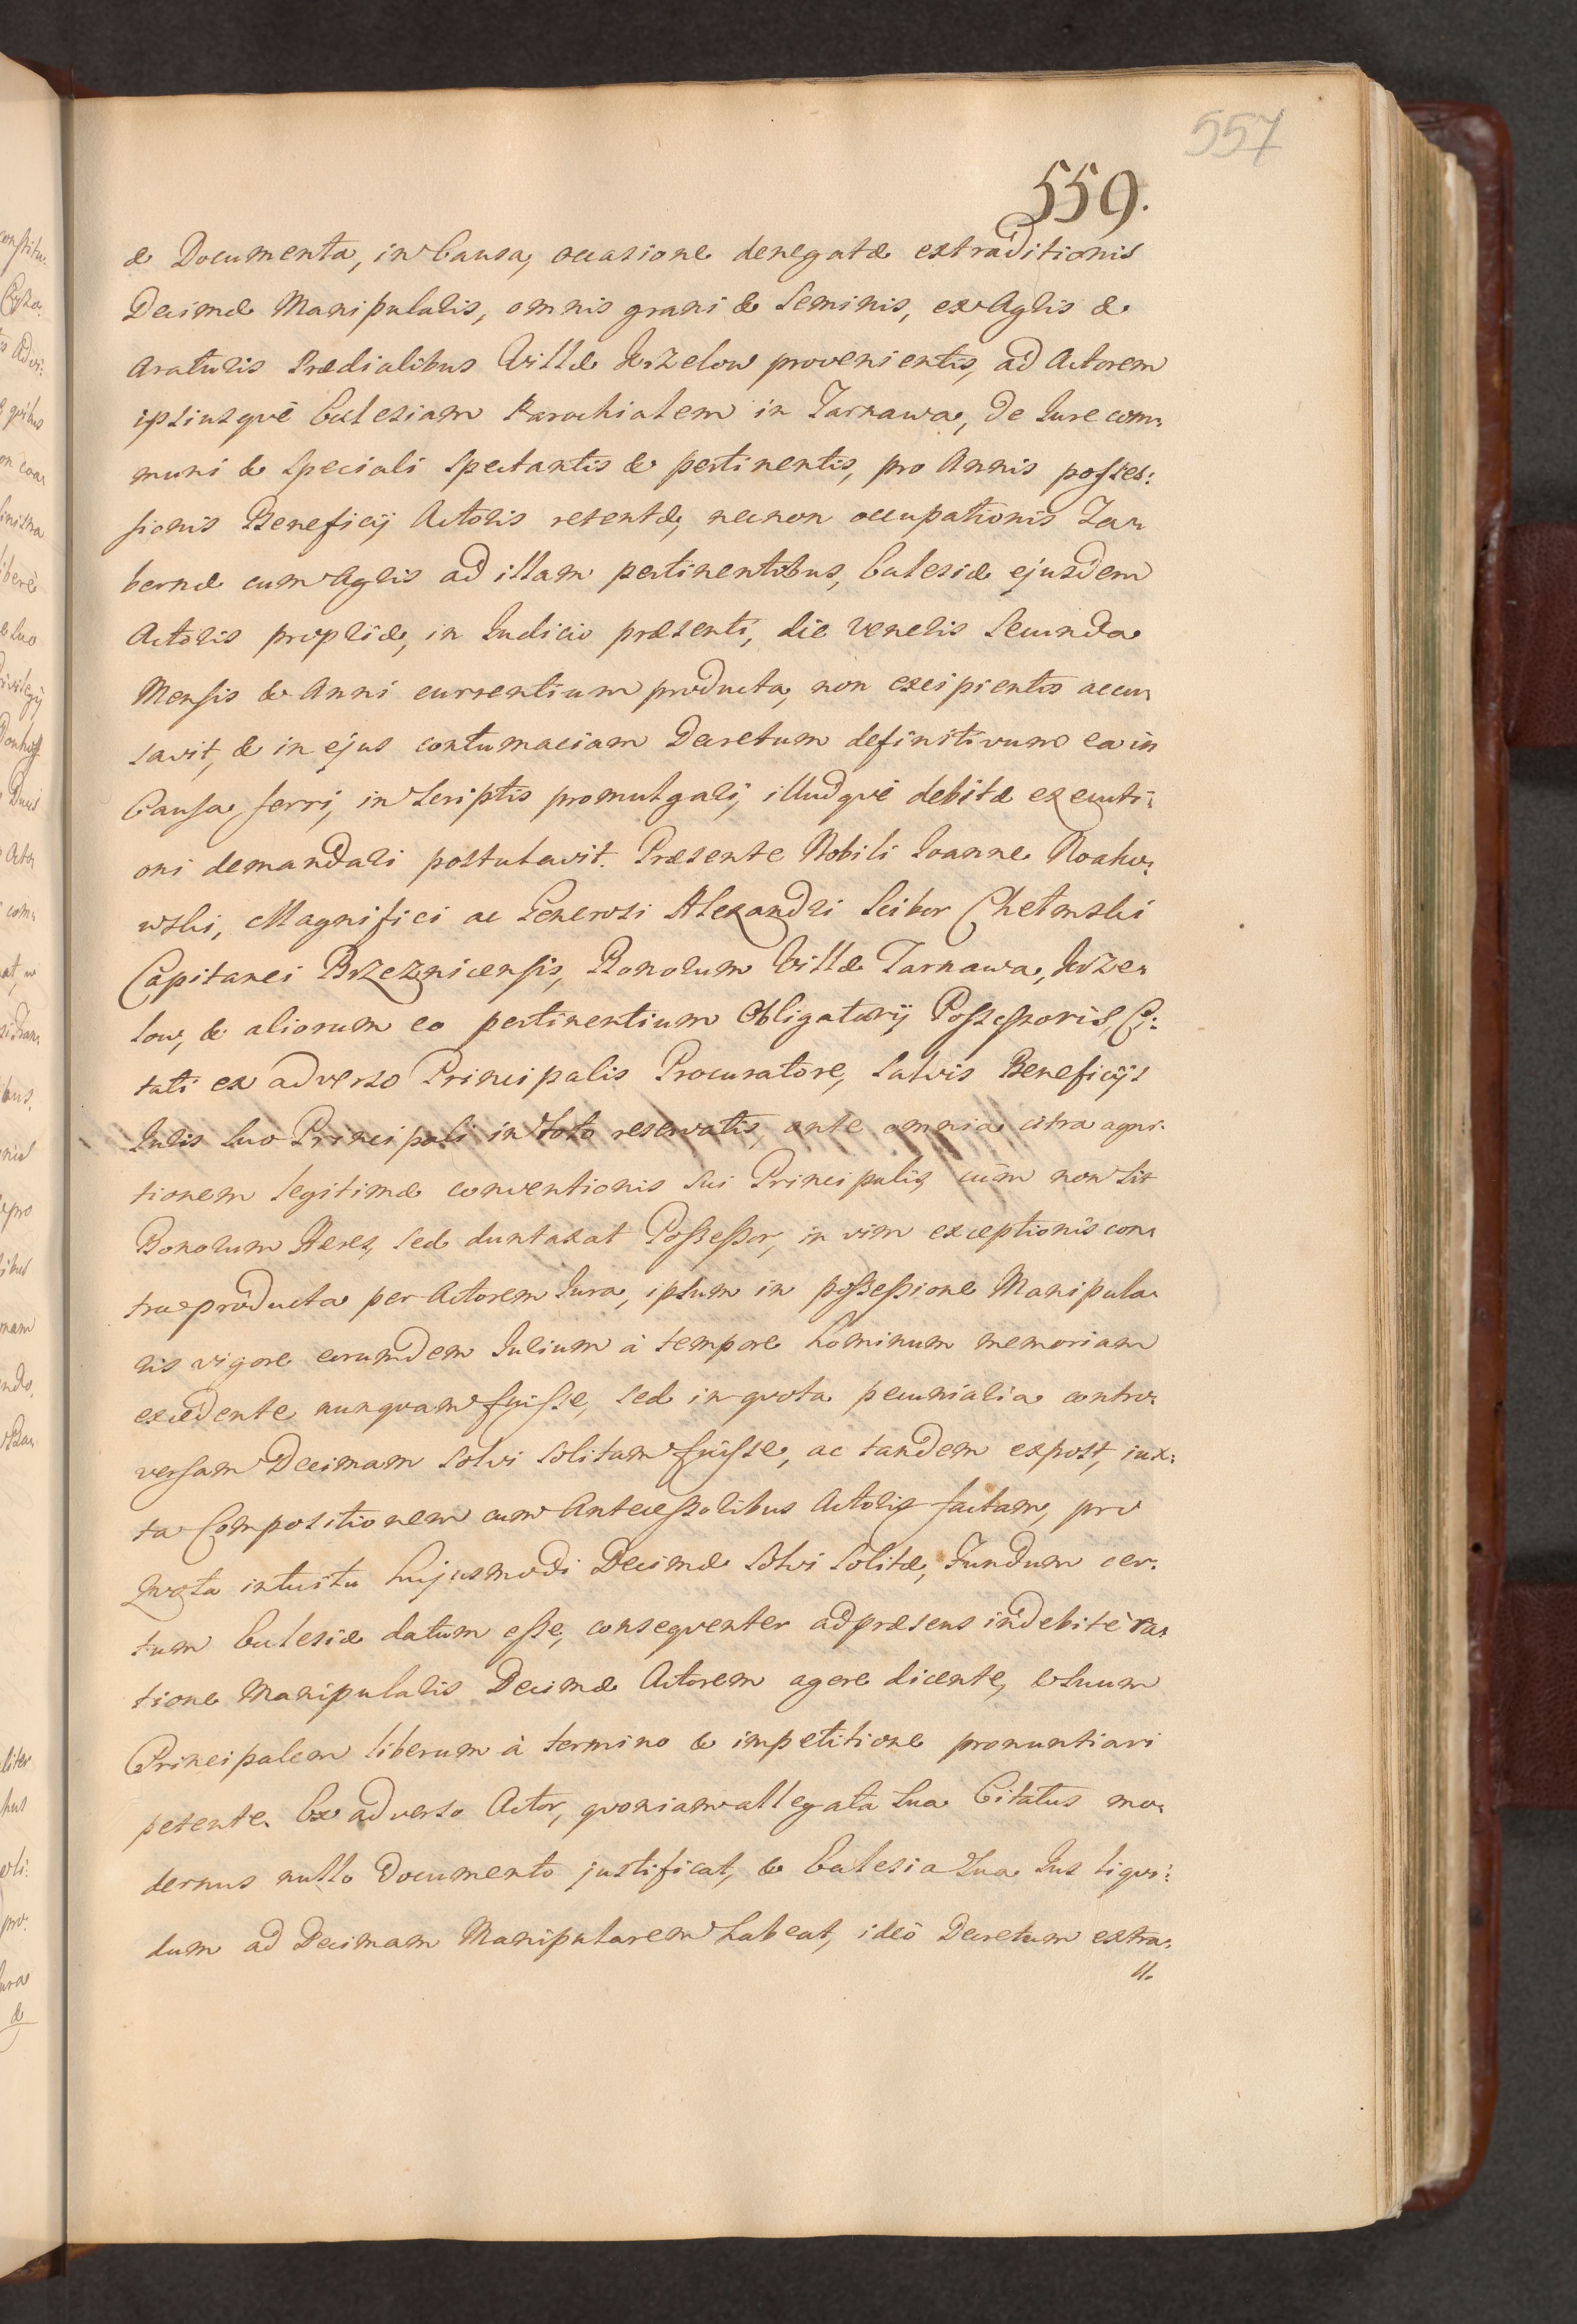 557
559.
& Documenta, in Causa, occasione denegatæ extraditionis
Decimæ Manipularis, omnis grani & Seminis, ex Agris &
Araturis Prædialibus Villæ Krzelow provenientis, ad Actorem
ipsiusqvè Ecclesiam Parochialem in Tarnawa, de Jure com:
muni & speciali spectantis & pertinentis, pro Annis posses:
sionis Beneficij Actoris retentæ, necnon occupationis Ta:
bernæ cum Agris ad illam pertinentibus, Ecclesiæ ejusdem
Actoris propriæ, in Judicio præsenti, die Veneris Secunda
Mensis & Anni currentium producta, non excipientis accu:
savit, & in ejus contumaciam Decretum definitivum ea in
Causa ferri, in Scriptis promulgari, illudqvè debitæ executi:
oni demandari postulavit. Præsente Nobili Joanne
wski, Magnifici ac Generosi Alexandri Scibor Chełmski
Capitanei Brzeznicensis, Bonorum Villæ Tarnawa, Krze:
low, & aliorum eo pertinentium Obligatorij Possessoris, Ci:
tati ex adverso Principalis Procuratore, salvis Beneficijs
Juris suo Principali in toto reservatis, ante omnia citra agni:
tionem legitimæ conventionis sui Principalis, cùm non sit
Bonorum Heres, sed duntaxat Possessor, in vim exceptionis con:
tra producta per Actorem Jura, ipsum in possessione Manipula:
ris vigore eorumdem Jurium à tempore hominum memoriam
excedente nunqvam fuisse, sed in qvota pecuniaria contro:
versam Decimam solvi solitam fuisse, ac tandem expost, jux:
ta Compositionem cum Antecessoribus Actoris factam, pro
Qvota intuitu hujusmodi Decimæ solvi solitæ, Fundum cer:
tum Ecclesiæ datum esse, conseqventer ad præsens indebitè ra:
tione Manipularis Decimæ Actorem agere dicente, & suum
Principalem liberum à termino & impetitione pronuntiari
petente. Ex adverso Actor, qvoniam allegata sua Citatus mo:
dernus nullo Documento justificat, & Ecclesia sua Jus liqvi:
dum ad Decimam Manipularem habeat, ideò Decretum extra:
//.